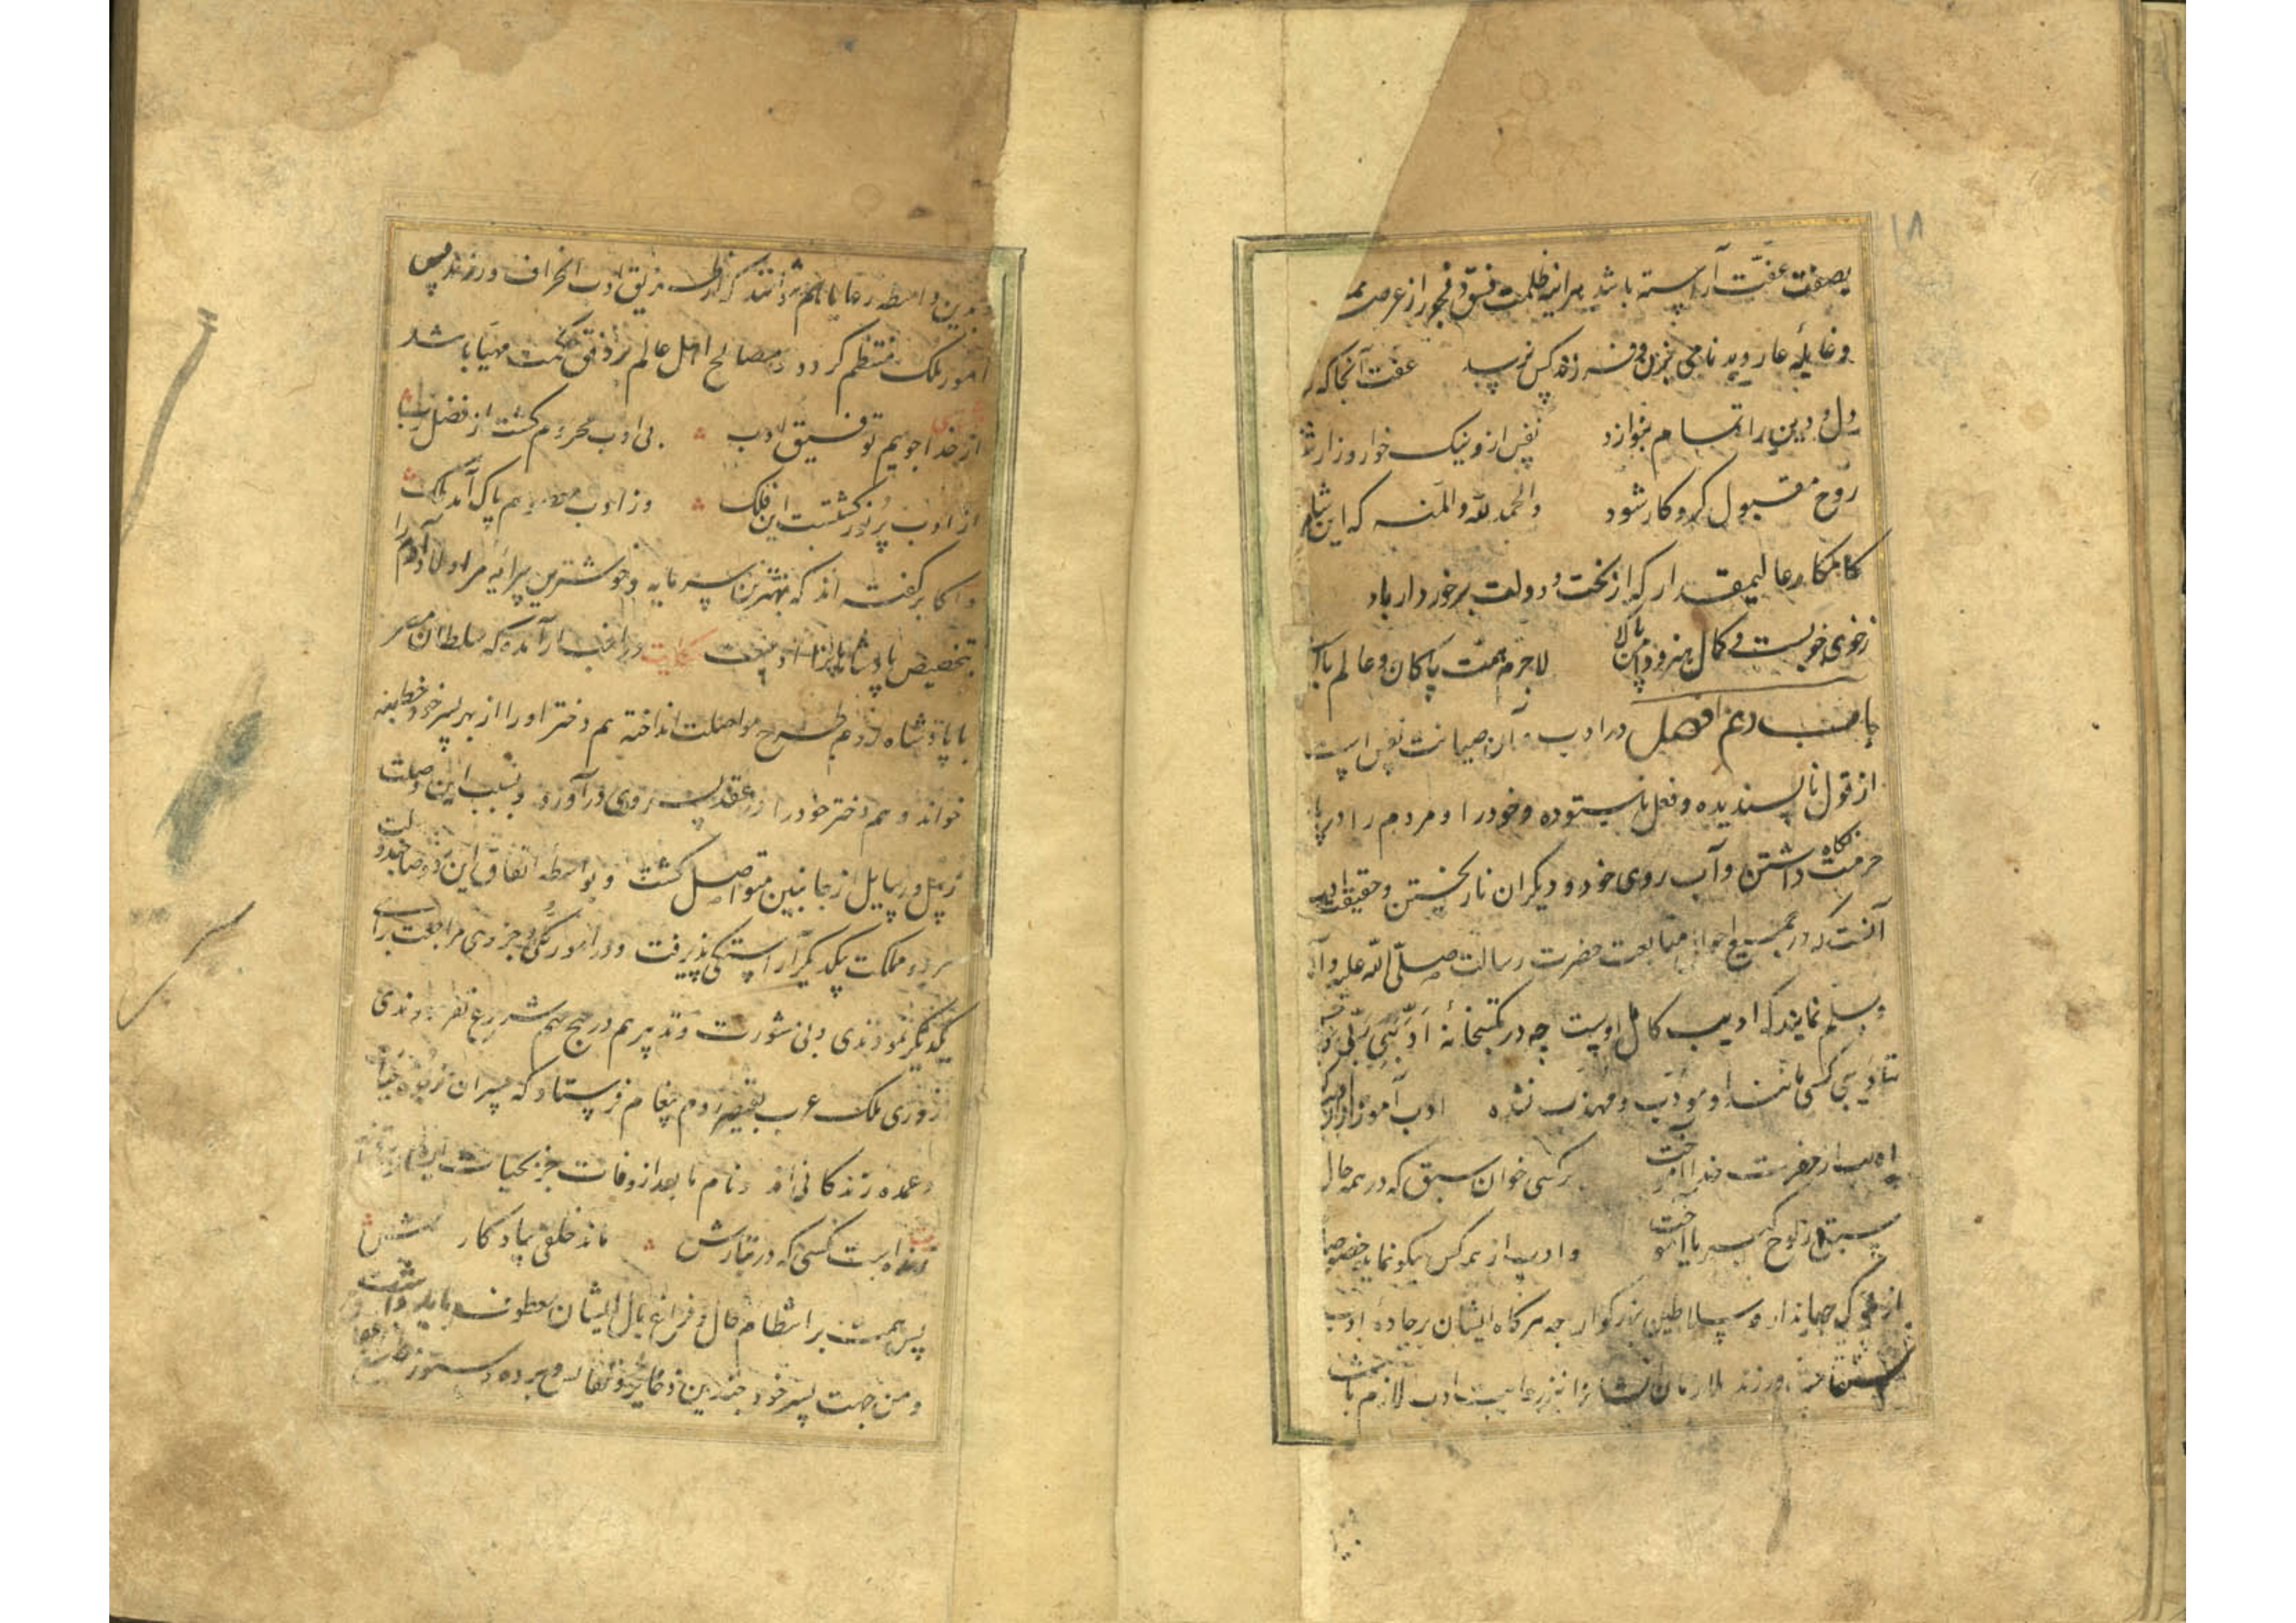 ۱۸
بصفت عفّت آراسته باشد هرآینه ظلمت فسق و فجور از عرصه
عفت آنجا که
دل و دین را تمام بنوازد نفس ازو نیک خوار و زار
روح مقبول کردکار شود والحمد لله والمنه که این شاه
کامکار عالیمقدار که از بخت و دولت برخوردار باد
زخوی خوبست و کمال هنرو پاکان و عالم
باب دهم در ادب و آن صیانت نفس است
از قول ناپسندیده و فعل ناستوده و خود را و مردم را در
حرمت نگاه داشتن و آب روی خود و دیکران ناریختن و حقیقت ادب
آنست که در جمیع احوال متابعت حضرت رسالت صلّی الله علیه و آله
وسلم نمایند که ادیب کامل اوست چه در مکتبخانهٔ ادّبنی ربّی
کسی مانند او مودّب و مهذّب نشده ادب آموز
ادیب از حضرت خدا آموخت بر کسی خوان سبق که در همه حال
سبق از لوح کبریا آموخت و ادب از همه کس نیکو نماید خصوصا
از ملوک جهاندار و سلاطین بزرکوار چه هرکاه ایشان بر جادهٔ ادب
ورزند ملازمان را نیز رعایت ادب لازم باشد
بدین واسطه رعایا هم نتوانند که از طریق ادب انحراف ورزند پس
امور ملک منتظم کردد و مصالح اهل عالم بر وفق حکمت مهیّا باشد
از خدا جوییم توفیق ادب بی ادب محروم کشت از فضل رب
از ادب پر نور کشتست این فلک وز ادب معصوم پاک آمد ملک
و اکابر کفته اند که بهترین سرمایه و خوشترین پیرایه مر اولاد آدم را
بتخصیص پادشاهان را ادبست حکایت در اخبار آمده که سلطان مصر
با پادشاه روم طرح مواصلت انداخته هم دختر او را از بهر پسر خود خطبه
خواند و هم دختر خود را در عقد پسر وی درآورد و بسبب این وصلت
رسل و رسایل از جانبین متواصل کشت و بواسطه اتفاق این دو صاحبدولت
هر دو مملکت یکدیگر آراستکی پذیرفت و در امور کلّی و جزوی مراجعت برای
یکدیکر نمودندی و بی مشورت و تدبیر هم در هیچ مهم شروع نفرمودندی
روزی ملک عرب بقیصر روم پیغام فرستاد که پسران
و عمده زندکانی اند و نام ما بعد از وفات جز بحیات ایشان
زنده است کسی که در تبارش ماند خلفی بیادکار
پس همت بر انتظام حال و فراغ بال ایشان معطوف باید داشت
و من جهت پسر خود چندین ذخایر و نفایس